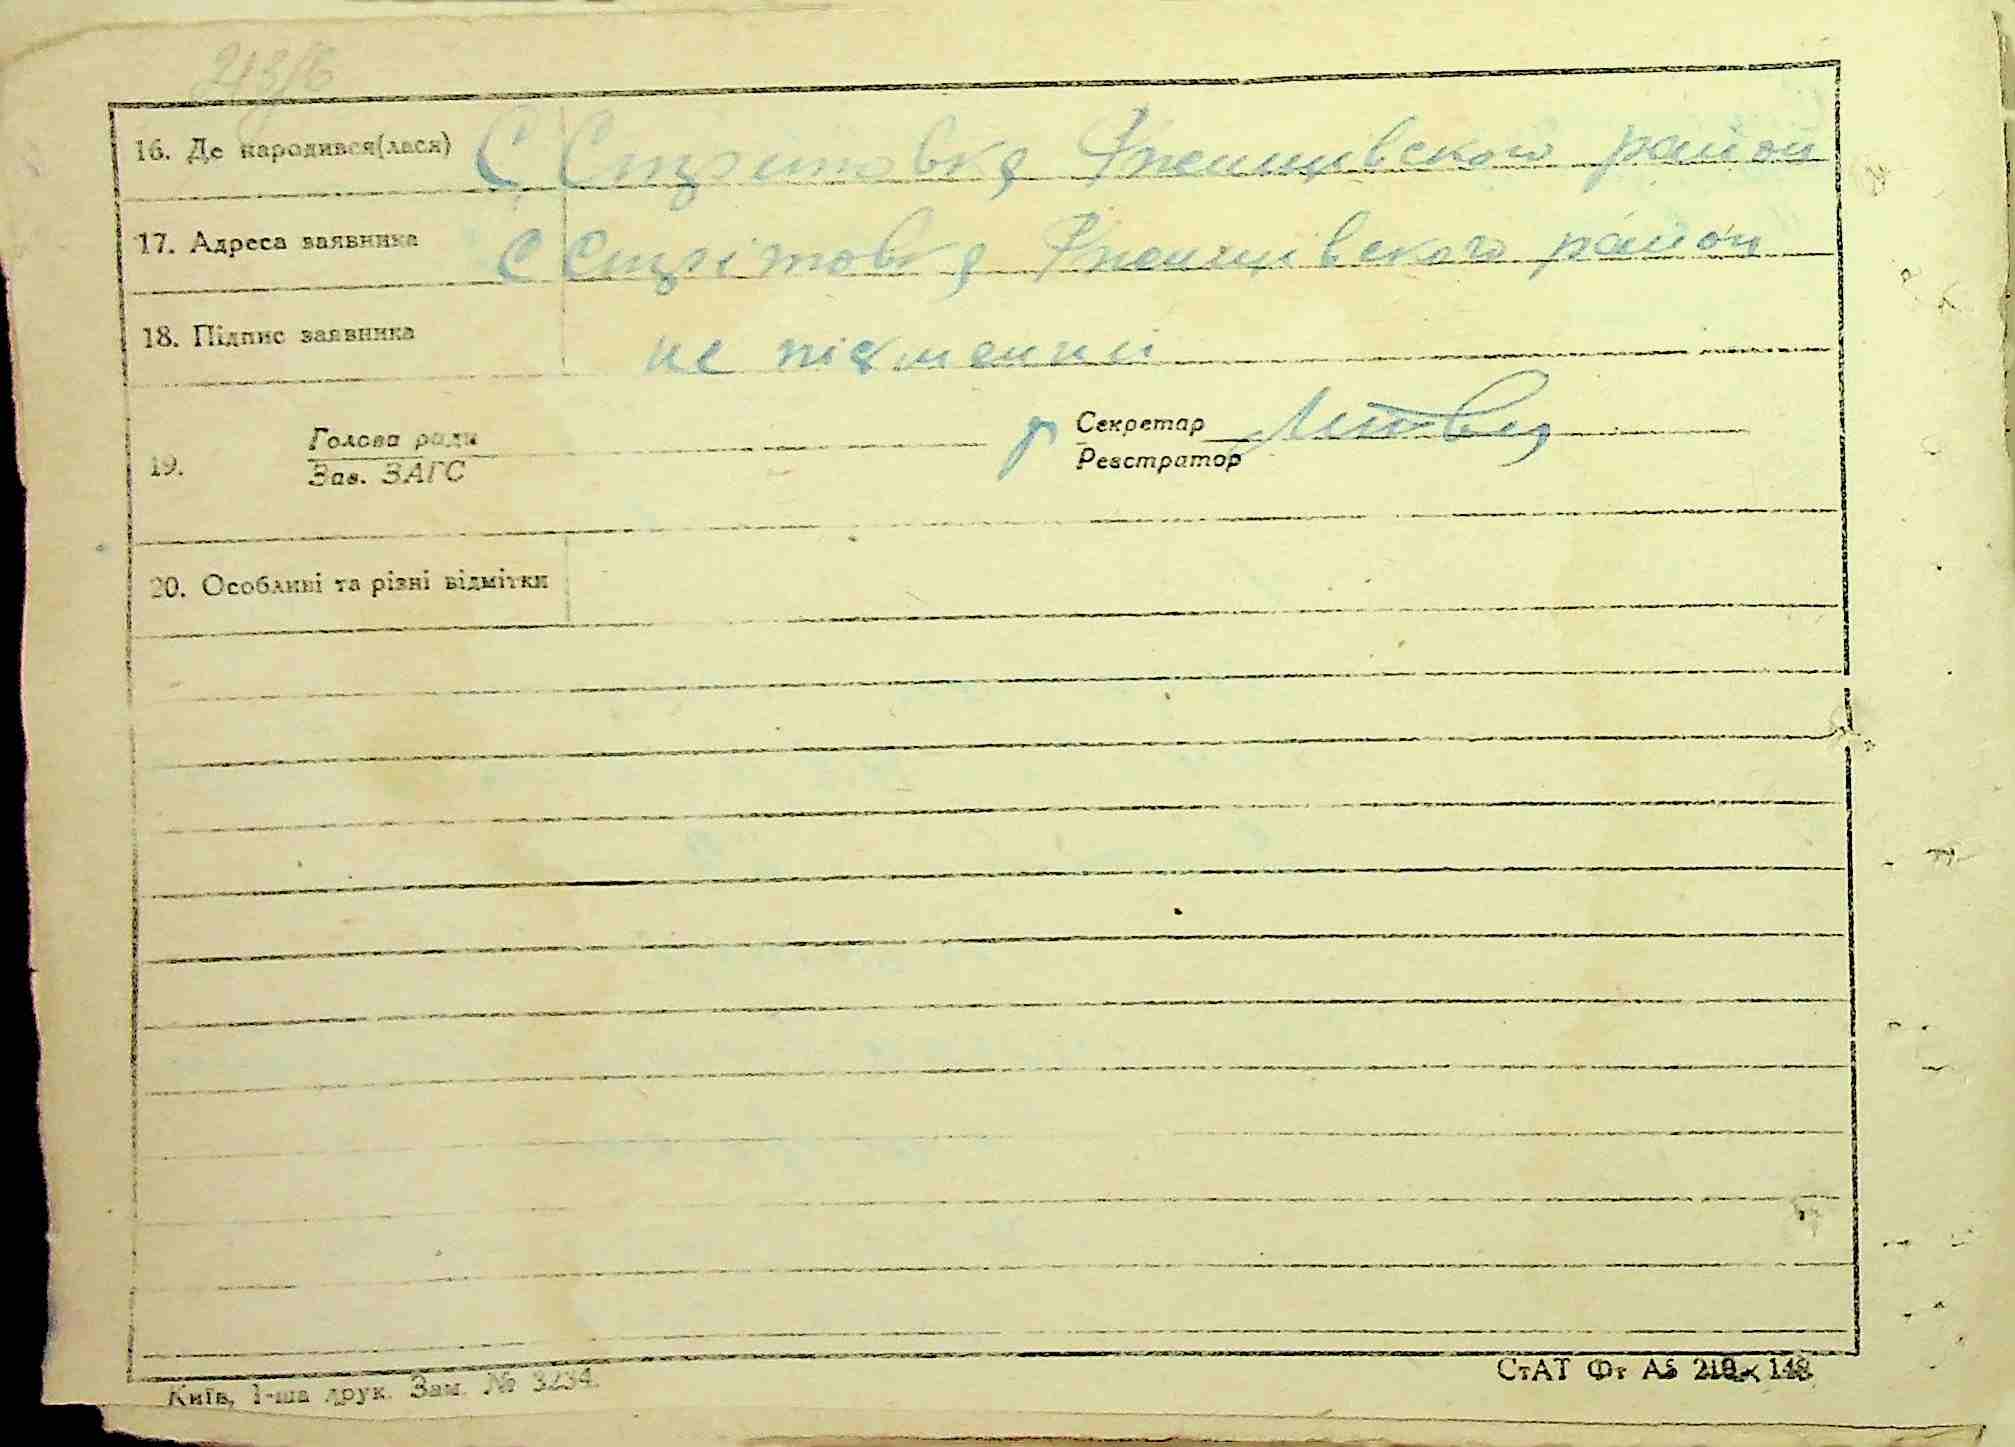 213/б
16. Де народився(лася) С Стрітовка Ржищівского район
17. Адреса заявника С Стрітовка Ржищівского район
18. Підпис заявника не пісменни
Голова ради Секретар
19. Зав. ЗАГС Реєстратор
20. Особливі та різні відмітки
Київ, 1-ша друк. Зам. № 3234.
СтАТ Фт А5 210×148